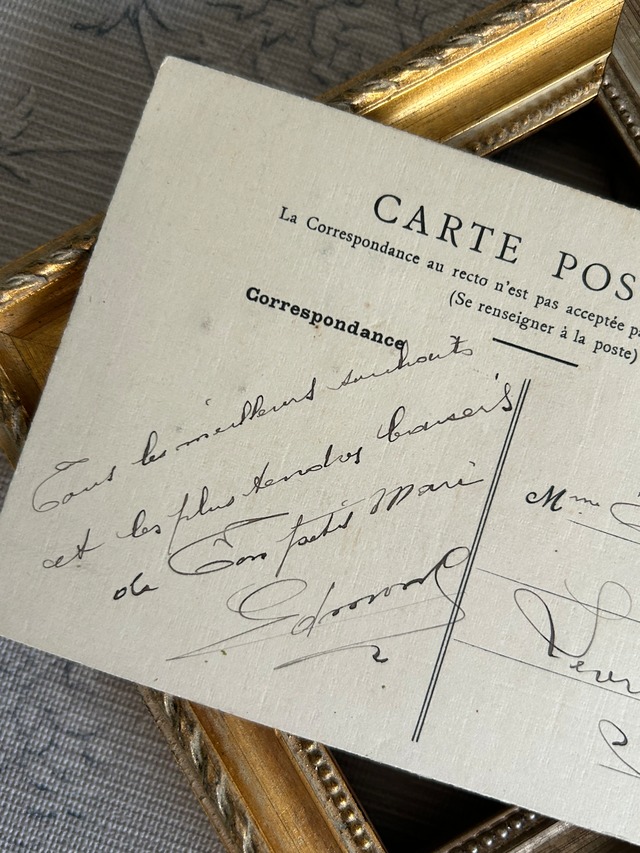 CARTE POS
La Correspondance au recto n'est pas acceptée pa
(Se renseigner à la poste)
Correspondance
Tous les meilleurs souhaits
et les plus tendres baisers
de Ton petit Mari
Edmond
Mme